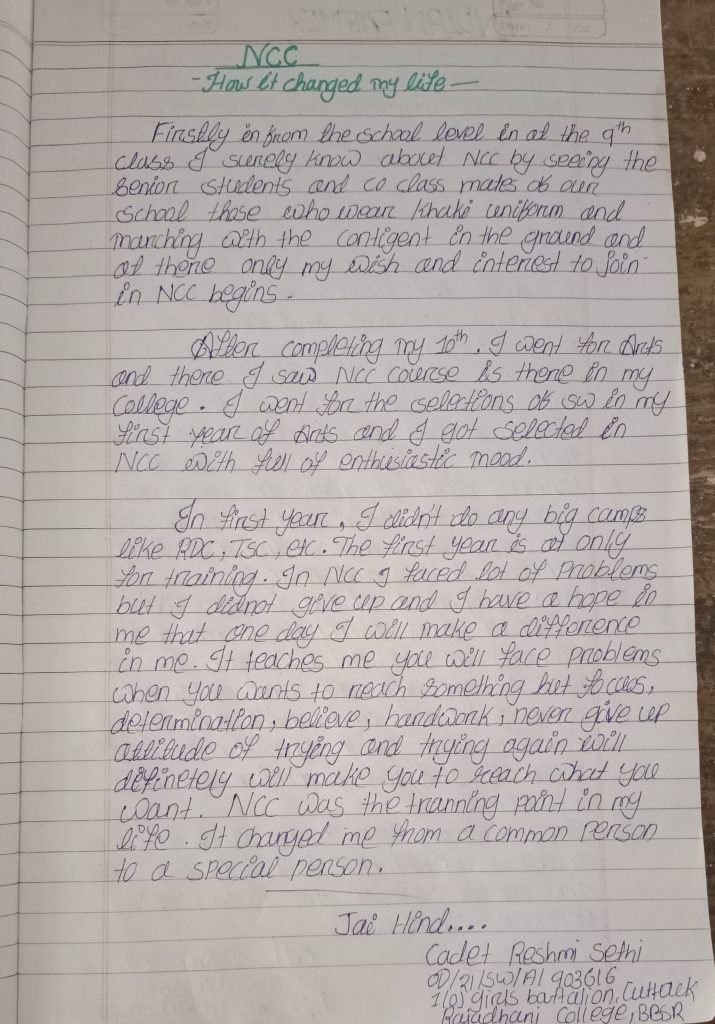 NCC
- How it changed my life —
Firstly in from the school level in at the 9th
class I surely know about NCC by seeing the
senior students and co class mates of our
school those who wear khaki uniform and
marching with the contigent in the ground and
at there only my wish and interest to join
in NCC begins.
After completing my 10th, I went for Arts
and there I saw NCC course is there in my
college. I went for the selections of SW in my
first year of Arts and I got selected in
NCC with full of enthusiastic mood.
In first year, I didn't do any big camps
like RDC, TSC, etc. The first year is at only
for training. In NCC I faced lot of problems
but I didnot give up and I have a hope in
me that one day I will make a difference
in me. It teaches me you will face problems
when you wants to reach something but focus,
determination, believe, hardwork, never give up
attitude of trying and trying again will
difinetely will make you to reach what you
want. NCC was the tranning point in my
life. It changed me from a common person
to a special person.
Jai Hind....
Cadet Reshmi Sethi
OD/21/SW/A/903616
1(O) girls battalion, Cuttack
Rajadhani College, BBSR